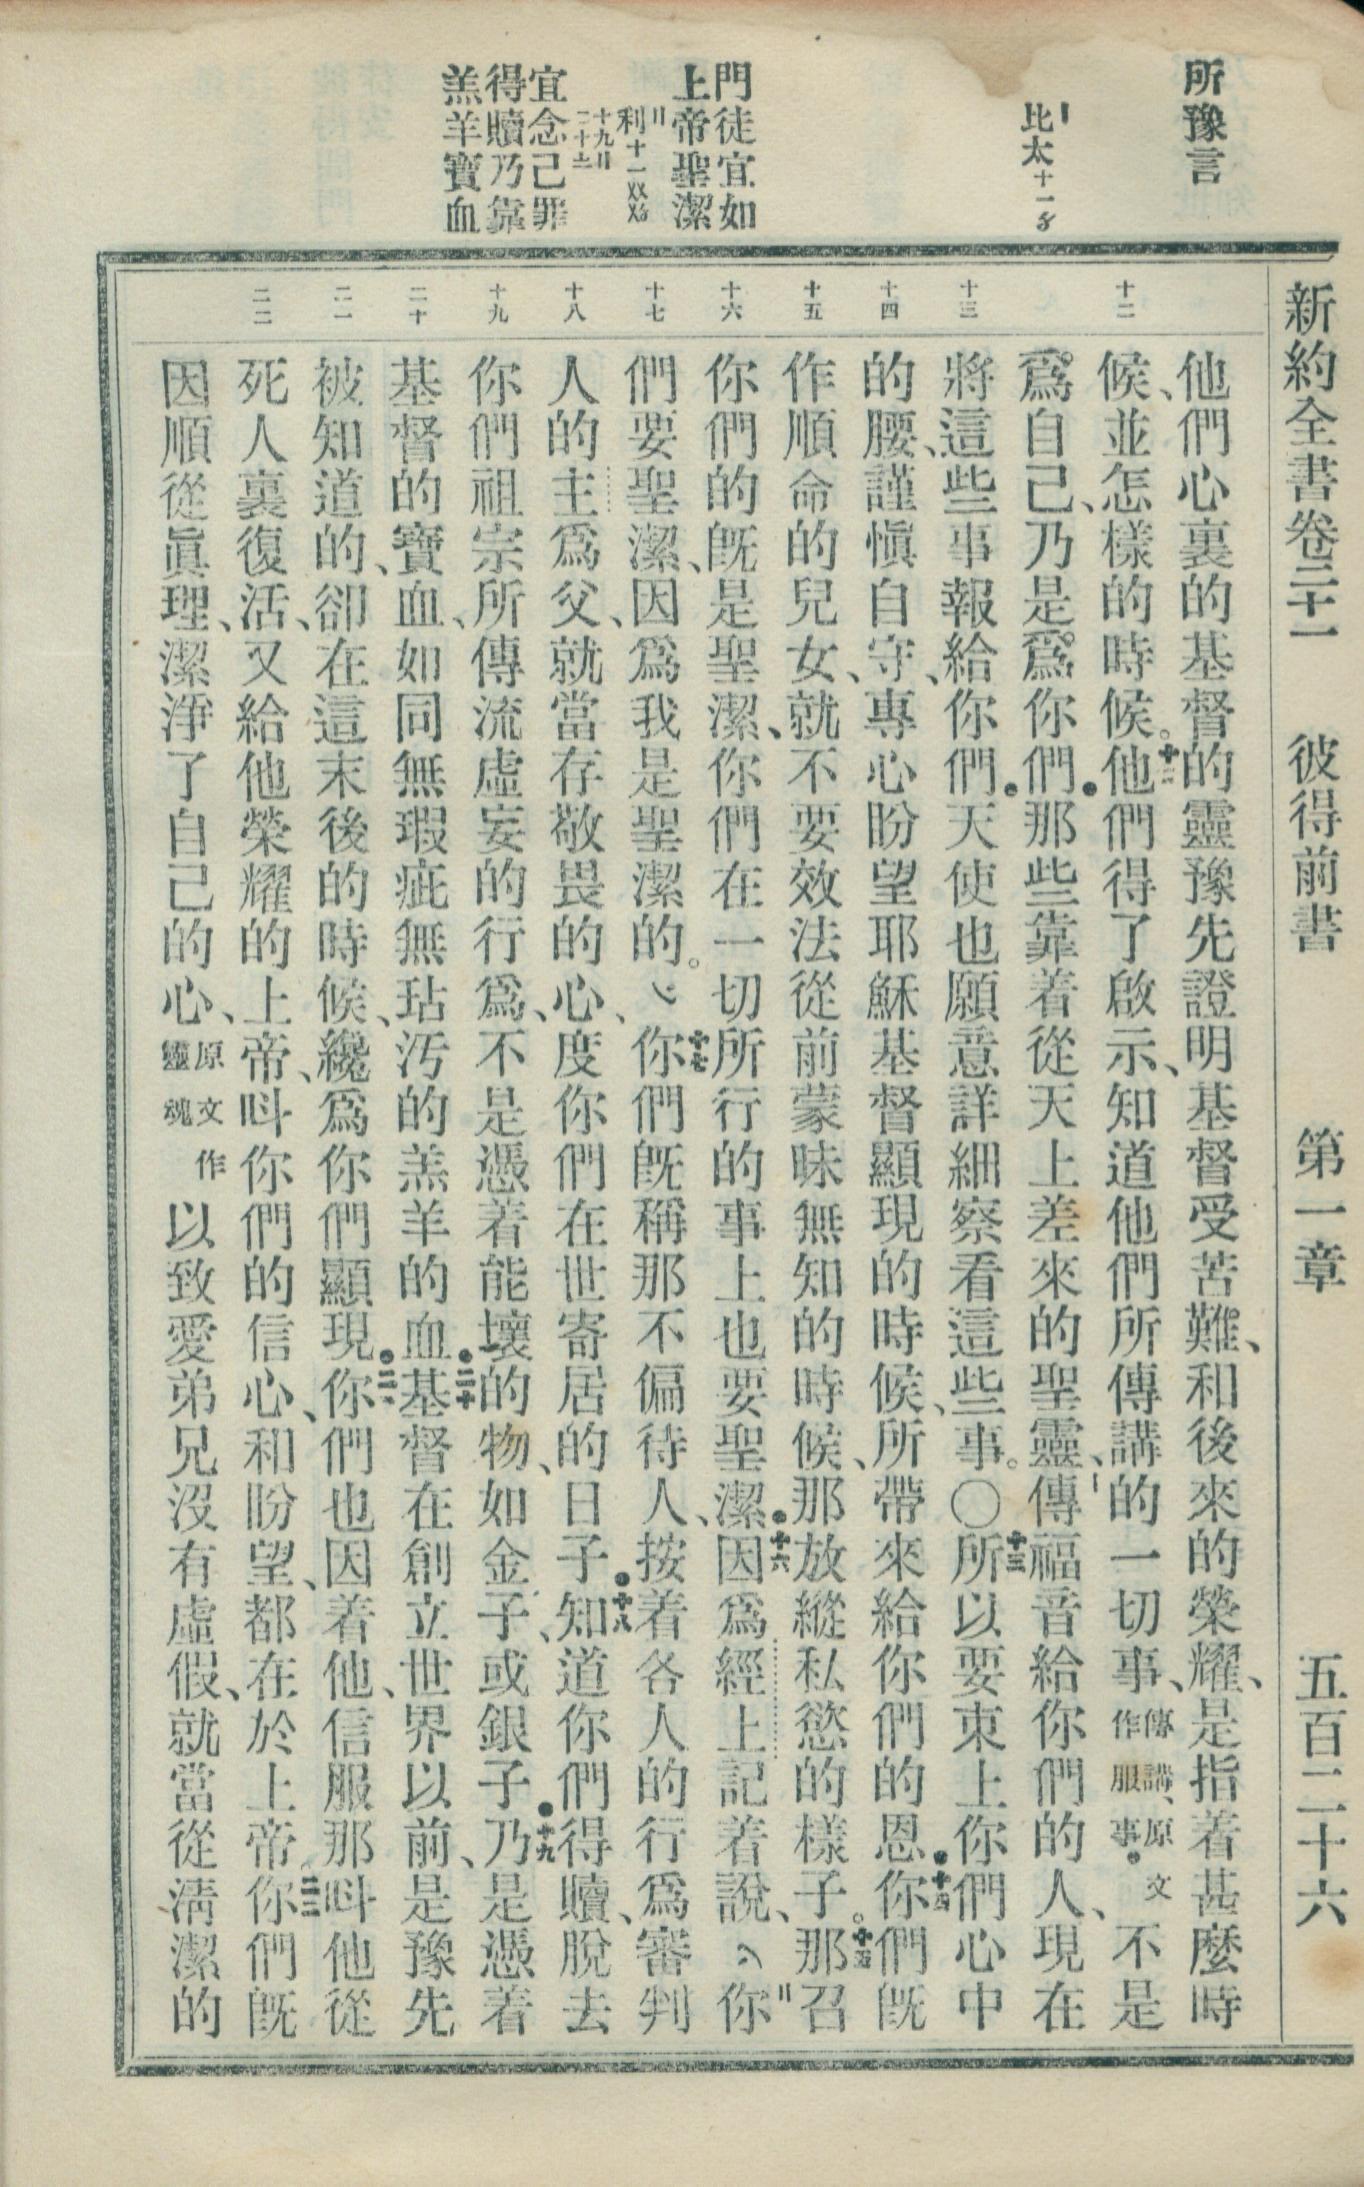 新約全書卷二十一 彼得前書 第一章 五百二十六
所豫言
〡比太十一〥
門徒宜如
上帝聖潔
〢利十一〤〤〤〥
十九〢
二十〧
宜念己罪
得贖乃靠
羔羊寶血
十二
十三
十四
十五
十六
十七
十八
十九
二十
二一
二二
他們心裏的基督的靈豫先證明基督受苦難、和後來的榮耀、是指着甚麼時
候、並怎樣的時候。十二他們得了啟示、知道他們所傳講的一切事、傳講、原文作服事●不是
爲自己、乃是爲你們●那些靠着從天上差來的聖靈、〡傳福音給你們的人、現在
將這些事報給你們●天使也願意詳細察看這些事。〇十三所以要束上你們心中
的腰、謹愼自守、專心盼望耶穌基督顯現的時候、所帶來給你們的恩●十四你們旣
作順命的兒女、就不要效法從前蒙昧無知的時候、那放縱私慾的樣子。十五那召
你們的旣是聖潔、你們在一切所行的事上也要聖潔●十六因爲經上記着說、〢你
們要聖潔、因爲我是聖潔的。十七你們旣稱那不偏待人、按着各人的行爲審判
人的主爲父、就當存敬畏的心、度你們在世寄居的日子●十八知道你們得贖、脫去
你們祖宗所傳流虛妄的行爲、不是憑着能壞的物、如金子、或銀子●十九乃是憑着
基督的寶血、如同無瑕疵無玷汚的羔羊的血●二十基督在創立世界以前、是豫先
被知道的、卻在這末後的時候、纔爲你們顯現●二一你們也因着他、信服那呌他從
死人裏復活、又給他榮耀的上帝、呌你們的信心、和盼望、都在於上帝、二二你們旣
因順從眞理、潔淨了自己的心、原文作靈魂以致愛弟兄沒有虛假、就當從淸潔的